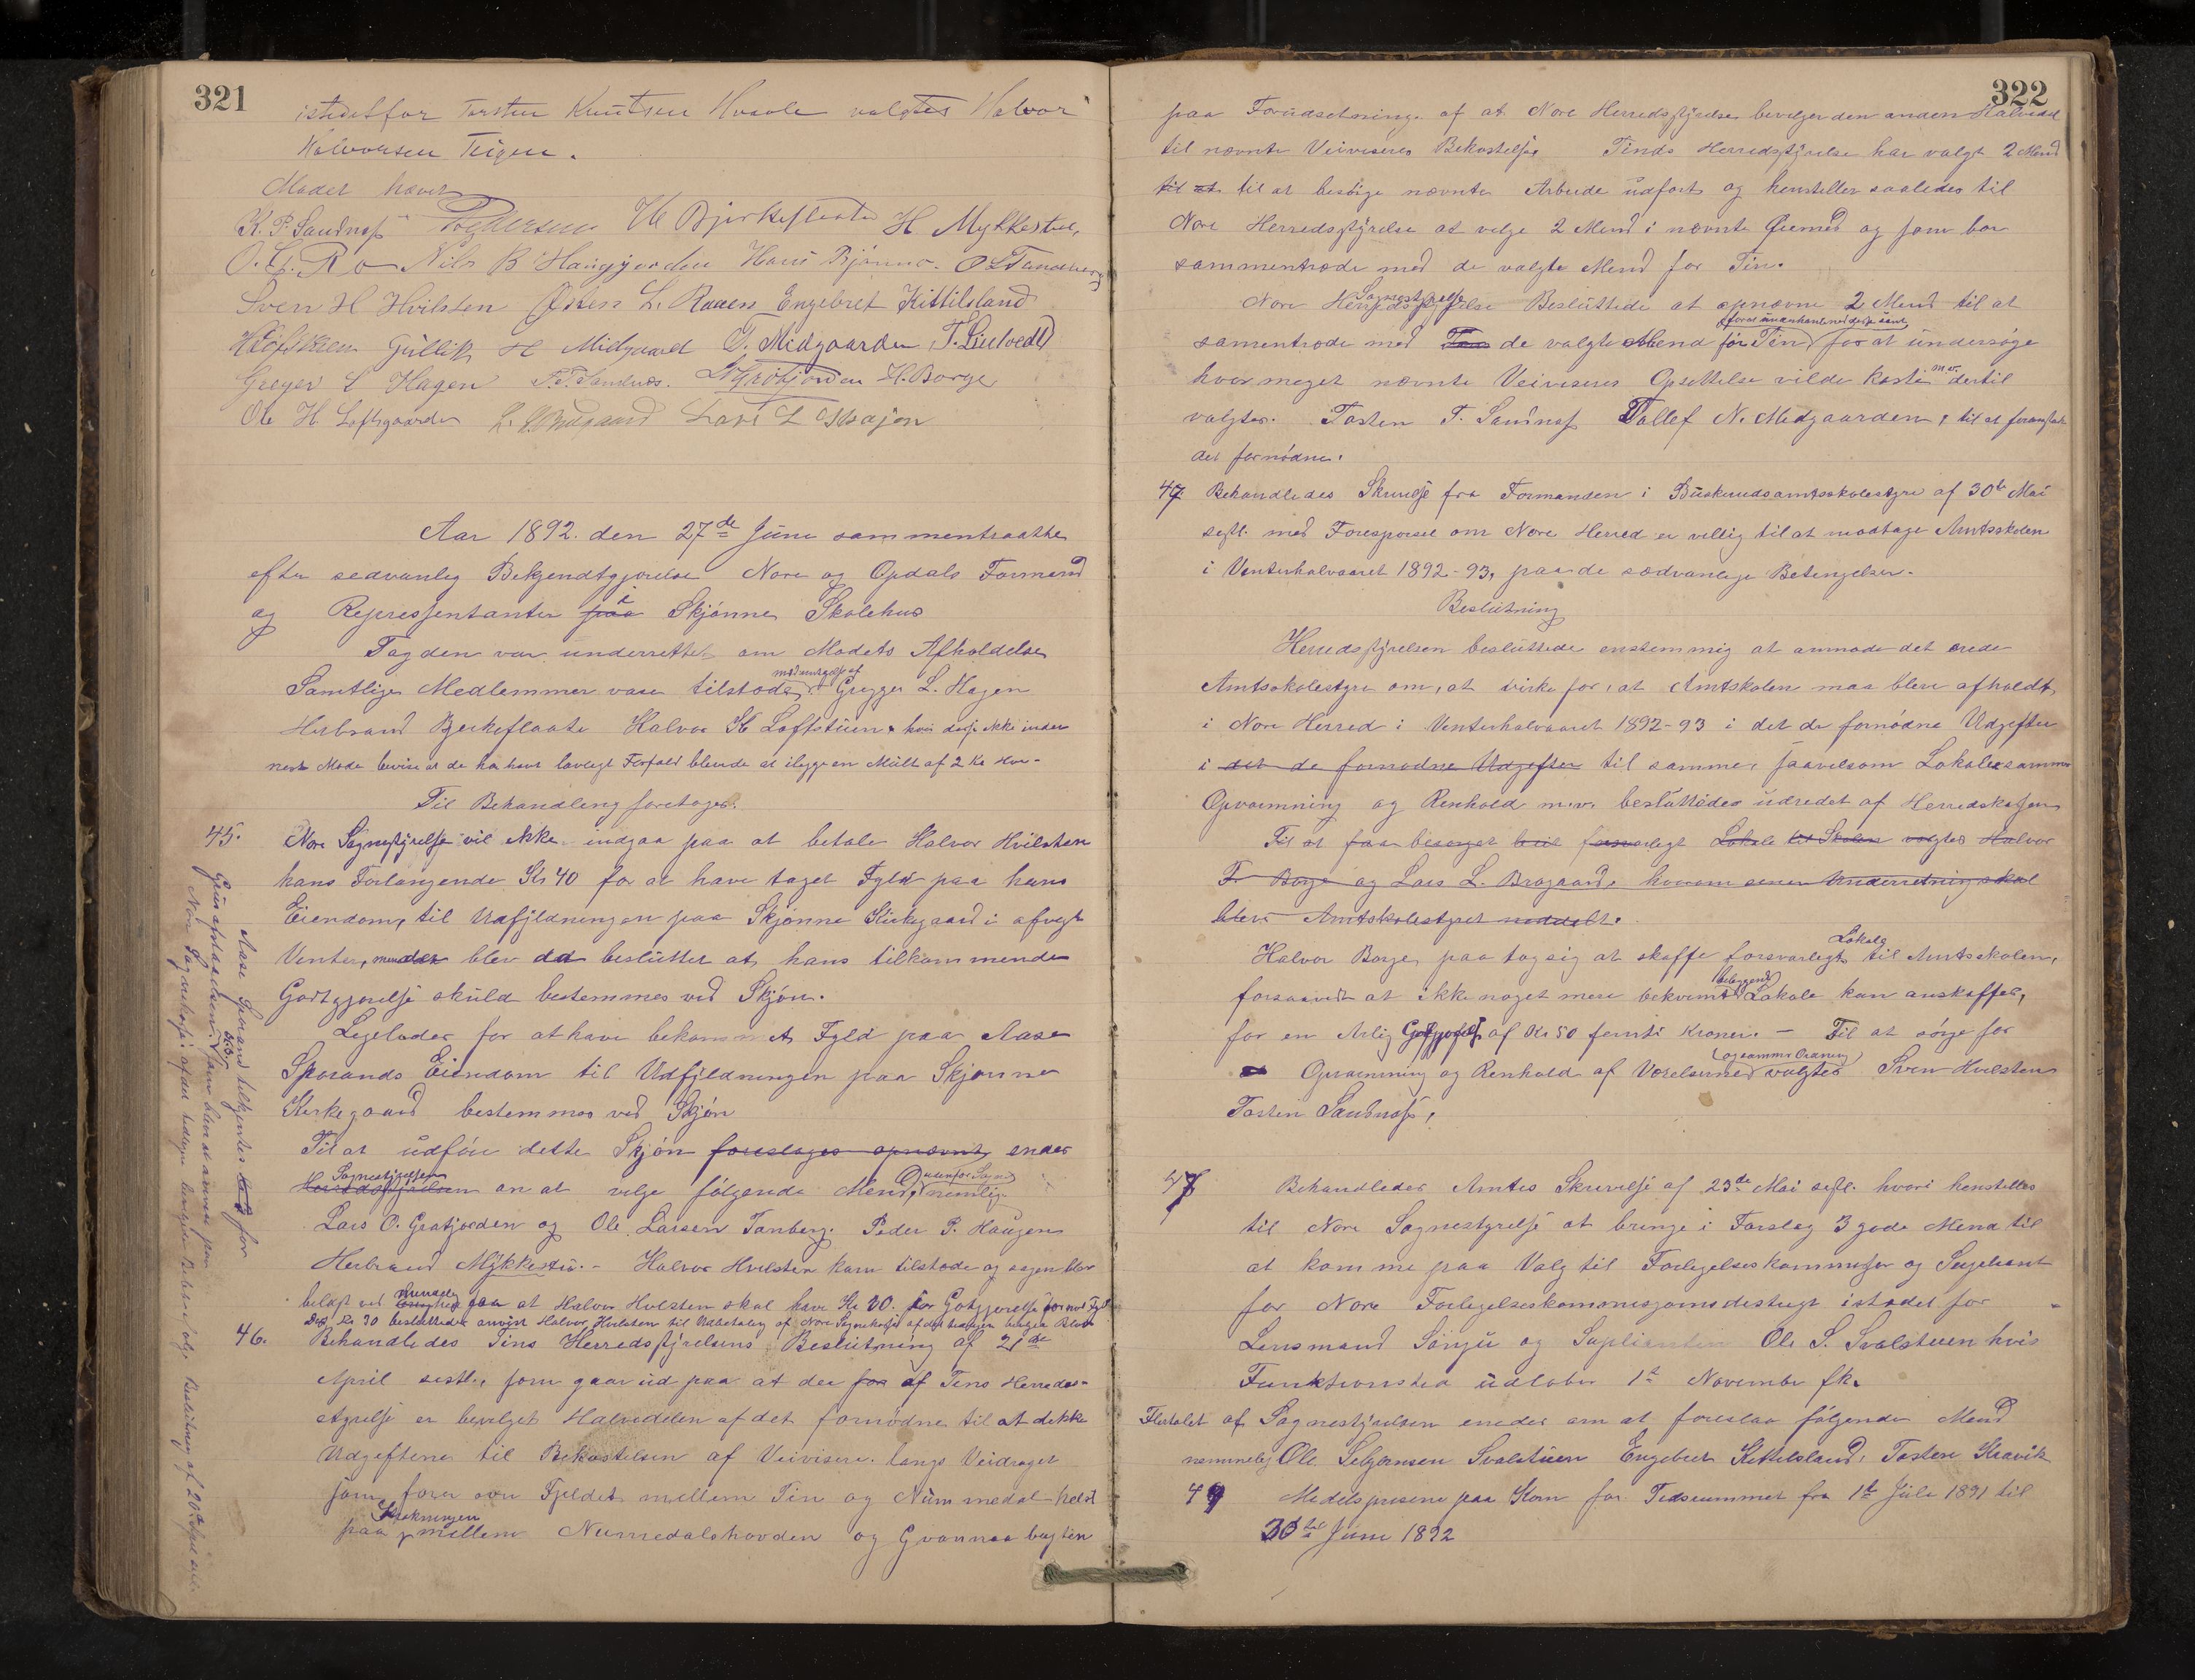 321
istedetfor Torsten Knutsen Hvaale valgtes Halvor
Halvorsen Teigen.
Mødet hævet
K. P. Sandnæs H Bjerkeflaate H Mykkestue,
O. G. Ro Nils B Haugjorden Hans Bjønno. O L Tandberg
Sven H Hvilsten Østen L. Raaen Engebret Kittilsland
Gullik H Midgaard O. Midgaarden T. Liutvedt
Greger L Hagen T. T. Sandnæs. H. Borge
Ole H. Loftsgaarden Lars L
Aar 1892. den 27de Juni sammentraatte
efter sedvanlig Bekjendtgjørelse Nore og Opdals Formænd
og Repressentanter paa i Skjønne Skolehus
Fogden var underrettet om Mødets Afholdelse
Samtlige Medlemmer vare tilstede med undtagelse af Gregger L. Hagen
Herbrand Bjerkeflaate Halvor H Loftstuen hvis disse ikke inden
neste Møde bevise at de ha havt lovlegt Forfald blevde at ilegge en Mult af 2 Kr Hver-
Til Behandling foretoges:
45. Nore Sognestyrelse vil ikke indgaa paa at betale Halvor Hvilsten
hans Forlangende Kr 40 for at have taget Fyld paa hans
Eiendom, til Udfyldningen paa Skjønne Kirkegaard i afvigte
Venter, men det blev da besluttet at hans tilkommende
Godtgjørelse skuld bestemmes ved Skjøn.
Legeledes for at have bekommet Fyld paa Aase
Sporands Eiendom til Udfyldningen paa Skjønne
Kirkegaard bestemmes ved Skjøn
Til at udføre dette Skjøn foreslages opnævnt enedes
Herredstyrelsen Sognestyrelsen om at velge følgende Mend, nemlig
Lars O. Grøtjorden og Ole Larsen Tanberg. Peder P. Haugen
Herbrand Mykkestu. - Halvor Hvilsten kam tilstede og sagen blev
belagt ved paa at Halvor Hvilsten skal have Kr 20. for Godtgjørelse for mod Fyld
46. Behandledes Tins Herredsstyrelsens Beslutning af 21de
April sestl., som gaar ud paa at der fra af Tins Herreds-
styrelse er bevilget Halvedelen af det fornødne til at dekke
Udgefterne til Bekostelsen af Veivisere langs Veidraget
som fører over Fjeldet mellem Tin og Nummedal helst
paa Strekningen mellem Nummedalshovden og Gvannaabugten
Aase Sporand tilkjentes Kr 5 for
322
paa Forudsetning af at Nore Herredsstyrelse bevilger den anden Halvdel
til nævnte Veiviseres Bekostelse Tinds Herredsstyrelse har valgt 2 Mend
til at til at besørge nævnte Arbeide udført og henstiller saaledes til
Nore Herredsstyrelse at velge 2 Mend i nævnte Øiemed og som bør
sammentræde med de valgte Mend for Tin.
Nore Herredsstyrelse Sognestyrelse Besluttede at opnævne 2 Mend til at
samentræde med de valgte Mend for Tin for at undersøge
hvor meget nævnte Veiviseres Opsettelse vilde koste dertil
valgtes. Tosten T. Sandnæs Tollef N. Midgaarden, til at foranstalte
det fornødne.
47. Behandledes Skrivelse fra Formanden i Buskerudsamtsskolestyre af 30te Mai
sestl. med Forespørsel om Nore Herred er villig til at modtage Amtsskolen
i Venterhalvaaret 1892-93, paa de sædvanlege Betengelser.
Beslutning
Herredsstyrelsen besluttede enstemmig at anmode det ærede
Amtsskolestyre om, at virke for, at Amtskolen maa blive afholdt
i Nore Herred i Venterhalvaaret 1892-93 i det de fornødne Udgefter
i det de fornødne Udgefter til samme, saavelsom Lokale samme
Opvarmning og Renhold m.v. besluttedes udredet af Herredskassen
Til at faa besørget forsvarlegt Lokale til Skolen valgtes Halvor
F. Borge og Lars L. Bragaard, hvorom senere Underretning skal
blive Amtskolestyret meddelt.
Halvor Borge, paa tog sig at skaffe forsvarlegt Lokale til Amtsskolen,
forsaavidt at ikke noget mere bekvemt beleggende Lokale kan anskaffes,
for en Arlig Godtgjørelse af Kr 50 femti Kroner. - Til at sørge for
Opvarmning og Renhold af Værelserne valgtes Sven Hvilsten
Tosten Sandnæs,
Behandledes Amtes Skrivelse af 23de Mai sestl. hvori henstilles
til Nore Sognestyrelse at bringe i Forslag 3 gode Mend til
at komme paa Valg til Forligelseskommisær og Supleant
for Nore Forligelseskommisjonsdestrigt istedet for
Lensmand Songu og Suplianten Ole S. Svalstuen hvis
Funktionstid udløber 1te November fk.
Flertalet af Sognestyrelsen enedes om at foreslaa følgende Mend
nemmelig Ole Sebjørnsen Svalstuen Engebret Kettelsland, Tosten Kravik
49 Medelsprisene paa Korn for Tidsrummet fra 1te Juli 1891 til
30te Juni 1892